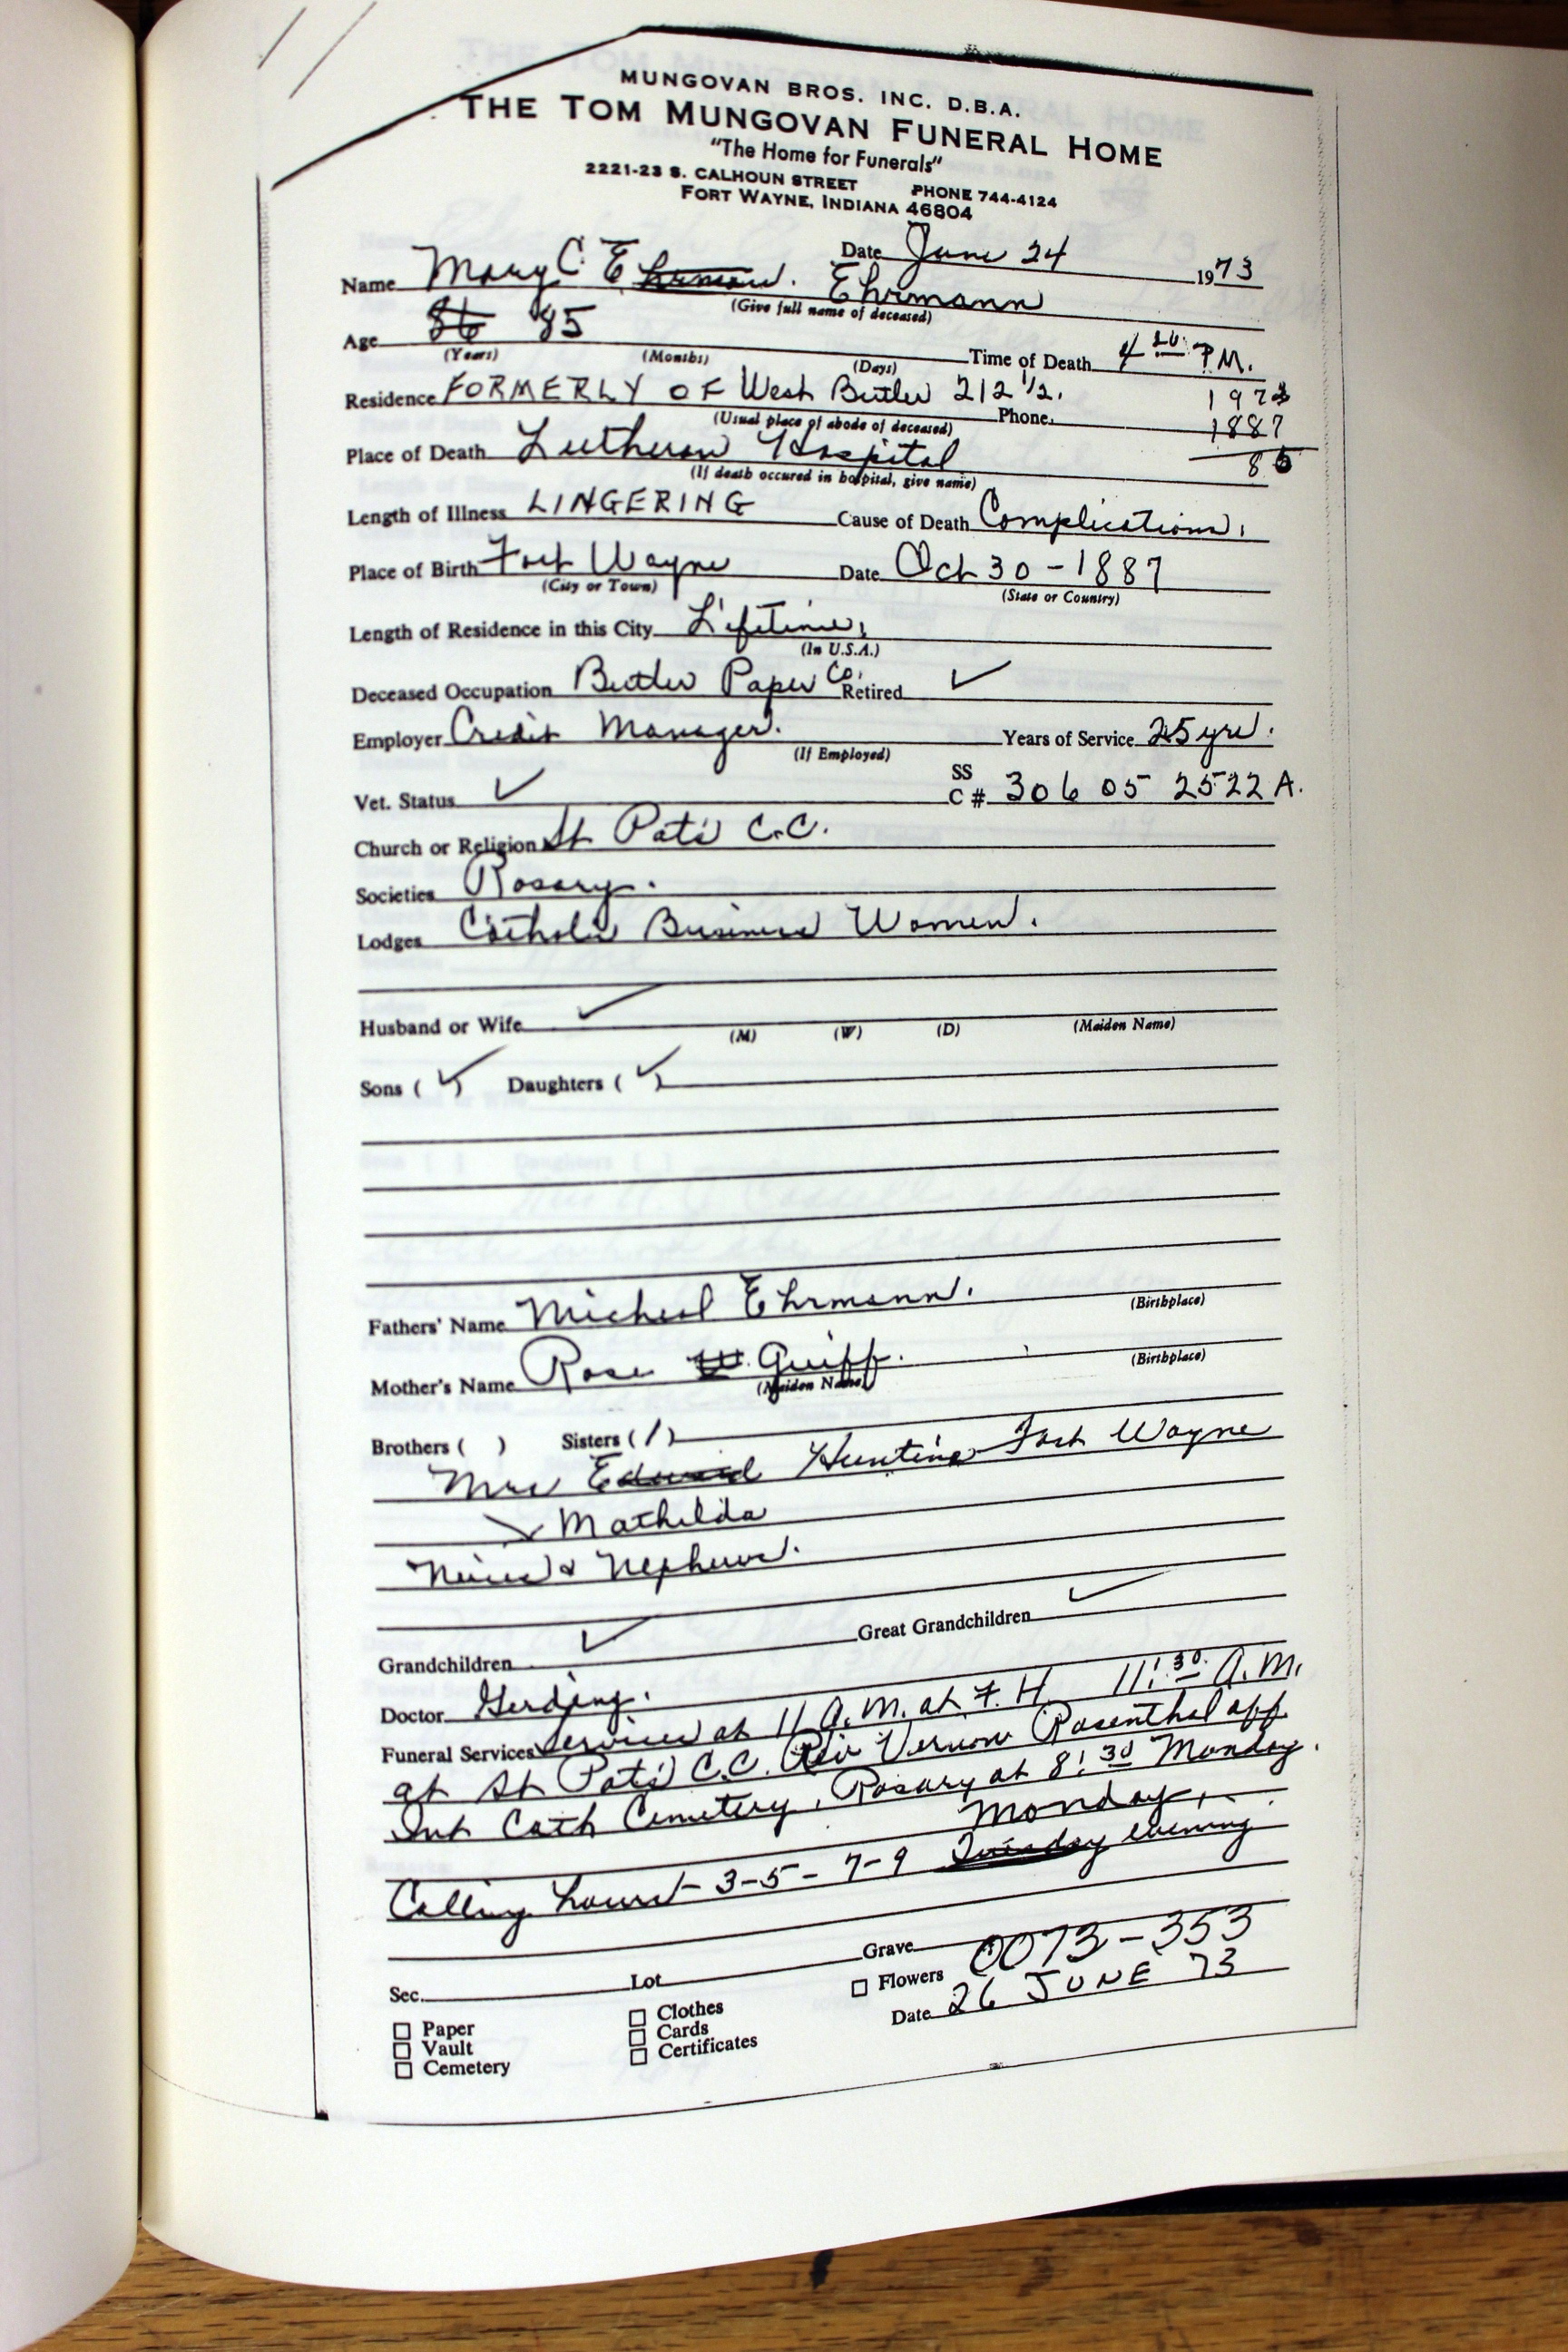 MUNGOVAN BROS. INC. D.B.A.
THE TOM MUNGOVAN FUNERAL HOME
"The Home for Funerals"
2221-23 S. CALHOUN STREET PHONE 744-4124
FORT WAYNE, INDIANA 46804
Date June 24 1973
Name Mary C. Ehrman. Ehrmann
(Give full name of deceased)
Age 86 85
(Years) (Months) (Days) Time of Death 4 20 P.M.
Residence FORMERLY OF West Butler 212 1/2. 1973
(Usual place of abode of deceased) Phone 1887
Place of Death Lutheran Hospital 86
(If death occured in hospital, give name)
Length of Illness LINGERING Cause of Death Complications.
Place of Birth Fort Wayne Date Oct 30 - 1887
(City or Town) (State or Country)
Length of Residence in this City Lifetime.
(In U.S.A.)
Deceased Occupation Butler Paper Co. Retired ✓
Employer Credit Manager. Years of Service 25 yrs.
(If Employed)
Vet. Status ✓ SS C # 306 05 2522 A.
Church or Religion St Pat's C.C.
Societies Rosary.
Lodges Catholic Business Women.
Husband or Wife ✓
(M) (W) (D) (Maiden Name)
Sons ( ✓ ) Daughters ( ✓ )
Fathers' Name Micheal Ehrmann.
(Birthplace)
Mother's Name Rose Guiff.
(Maiden Name) (Birthplace)
Brothers ( ) Sisters ( 1 )
Mrs Edward Hunting Fort Wayne
Mathilda
Nieces & Nephews.
Grandchildren ✓ Great Grandchildren ✓
Doctor Gerding.
Funeral Services Services at 11 A.M. at F. H. 11:30 A.M.
at St Pat's C.C. Rev Vernon Rosenthal off.
Int Cath Cemetery, Rosary at 8:30 Monday.
Monday
Calling hours - 3-5 - 7-9 Tuesday evening
Sec. Lot Grave 0073-353
Flowers
Date 26 JUNE 73
Paper Clothes
Vault Cards
Cemetery Certificates